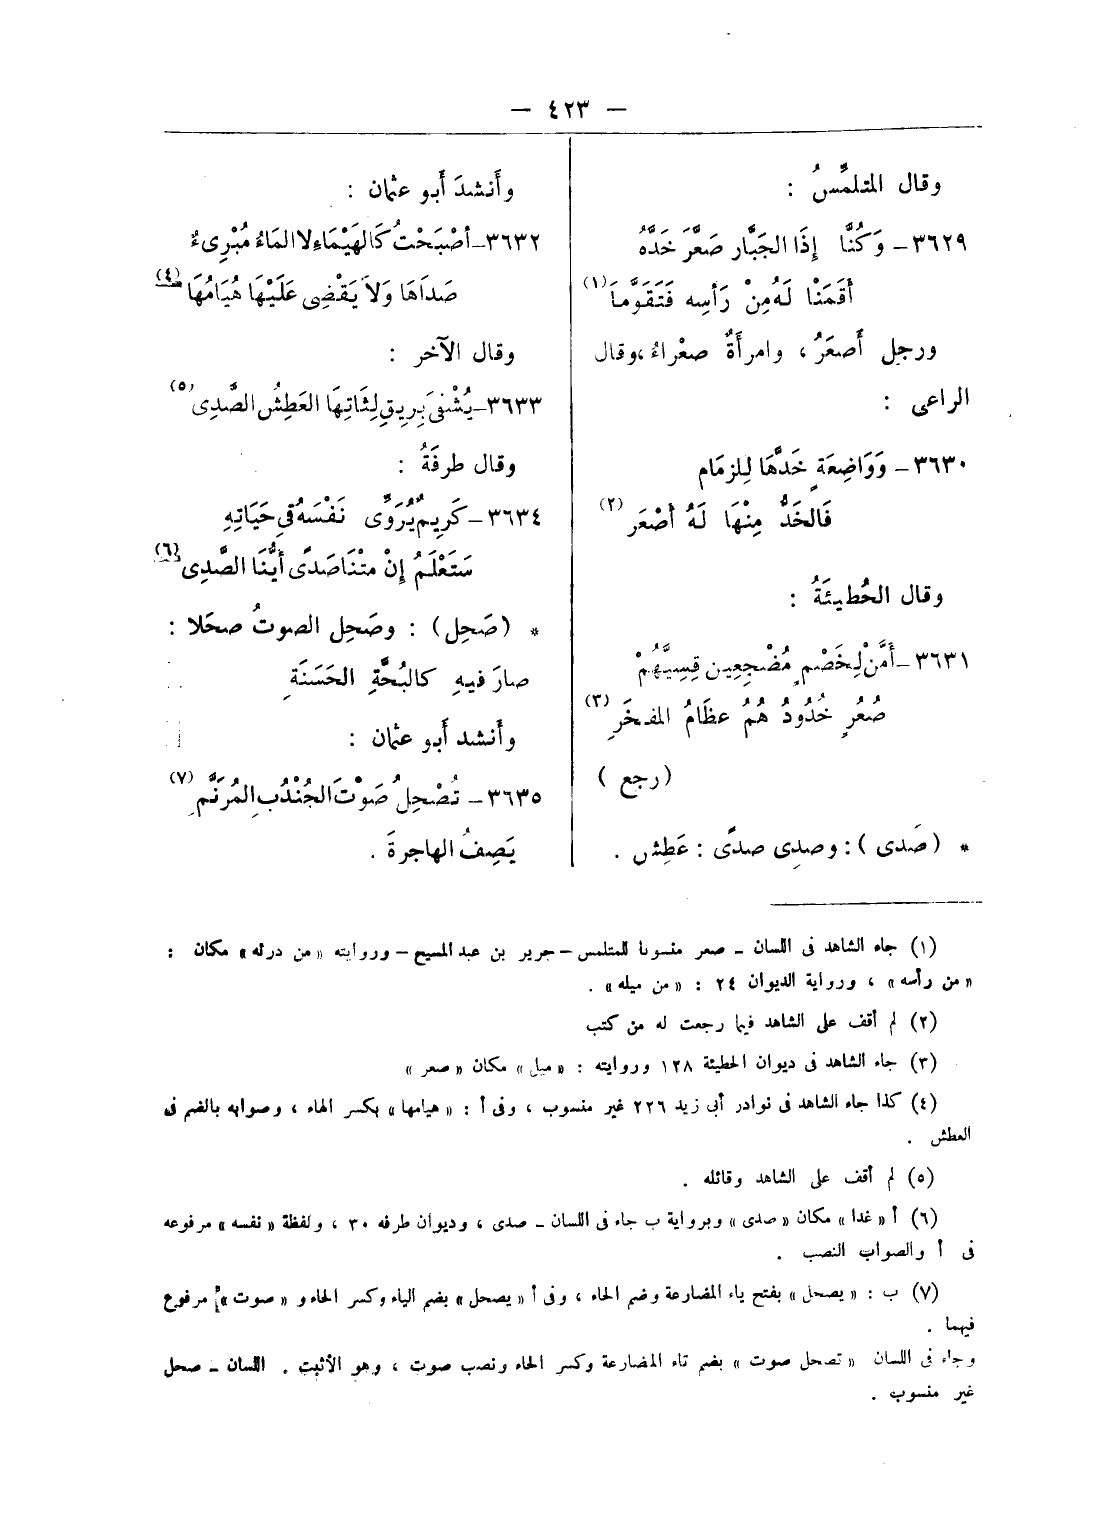 — ٤٢٣ —
وقال المتلمِّسُ :
٣٦٢٩ – وَكُنَّا إِذَا الجَبَّار صَعَّرَ خَدَّهُ
أَقَمْنَا لَهُ مِنْ رَأسِه فَتَقَوَّمَا (١)
ورجل أَصعَرُ ، وامرأَةٌ صعْراءُ ، وقال
الراعى :
٣٦٣٠ – وَوَاضِعَةٍ خَدَّهَا لِلزمَام
فَالخَدُّ مِنْهَا لَهُ أَصْعَر (٢)
وقال الحُطيئَةُ :
٣٦٣١ – أَمَّنْ لِخَصْمٍ مُضْجِعِين قِسِيَّهُمْ
صُعُرٍ خُدُودُهُمُ عظَامُ المفخَرِ (٣)
( رجع )
* ( صَدى ) : وصدِى صدًى : عَطِش .
وأَنشدَ أَبو عثمان :
٣٦٣٢ – أصْبَحْتُ كَالهَيْمَاءِ لا المَاءُ مُبْرِىءٌ
صَدَاهَا وَلاَ يَقْضِى عَلَيْهَا هُيَامُهَا (٤)
وقال الآخر :
٣٦٣٣ – يُشْفىَ بِرِيقِ لِثَاتِهَا العَطِشُ الصَّدِى (٥)
وقال طرفَةُ :
٣٦٣٤ – كَرِيمٌ يُرَوِّى نَفْسَهُ فِى حَيَاتِهِ
سَتَعْلَمُ إِنْ مِتْنَا صَدًى أَيُّنَا الصَّدِى (٦)
* ( صَحِل ) : وصَحِل الصوتُ صحَلا :
صارَ فيهِ كالبُحَّةِ الحَسَنَةِ
وأَنشد أَبو عثمان :
٣٦٣٥ – تُصْحِلُ صَوْتَ الجُنْدُبِ المُرَنَّمِ (٧)
يَصِفُ الهاجرةَ .
(١) جاء الشاهد فى اللسان – صعر منسوبا للمتلمس – جرير بن عبد المسيح – وروايته « من درئه » مكان :
« من رأسه » ، ورواية الديوان ٢٤ : « من ميله » .
(٢) لم أقف على الشاهد فيما رجعت له من كتب
(٣) جاء الشاهد فى ديوان الحطيئة ١٢٨ وروايته : « ميل » مكان « صعر »
(٤) كذا جاء الشاهد فى نوادر أبى زيد ٢٢٦ غير منسوب ، وفى أ : « هيامها » بكسر الهاء ، وصوابه بالضم فى
العطش .
(٥) لم أقف على الشاهد وقائله .
(٦) أ « غدا » مكان « صدى » وبرواية ب جاء فى اللسان – صدى ، وديوان طرفه ٣٠ ، ولفظة « نفسه » مرفوعه
فى أ والصواب النصب .
(٧) ب : « يصحل » بفتح ياء المضارعة وضم الحاء ، وفى أ « يصحل » بضم الياء وكسر الحاء و « صوت » مرفوع
فيهما .
وجاء فى اللسان « تصحل صوت » بضم تاء المضارعة وكسر الحاء ونصب صوت ، وهو الأثبت . اللسان – صحل
غير منسوب .